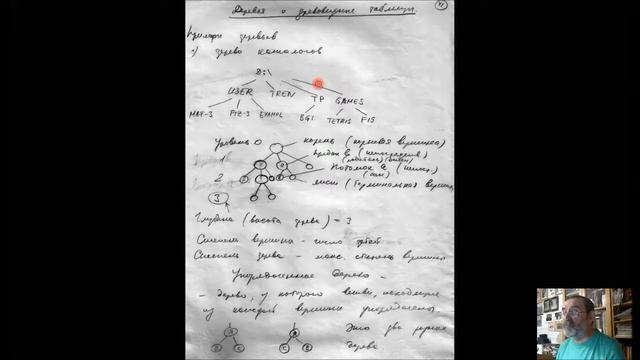 Деревья и древовидные таблицы.
Примеры деревьев
1) дерево каталогов
D:\
USER TREN TP GAMES
MAT-3 FIZ-3 BGI TETRIS F15
Уровень 0 корень (корневая вершина)
1 предок
2 Потомок
лист (терминальная вершина)
3
Глубина (высота дерева) = 3
Степень вершины - число
Степень дерева - макс. степень вершины
Упорядоченное дерево -
- дерево, у которого ветви, исходящие
из каждой вершины упорядочены.
Это два разных
дерева